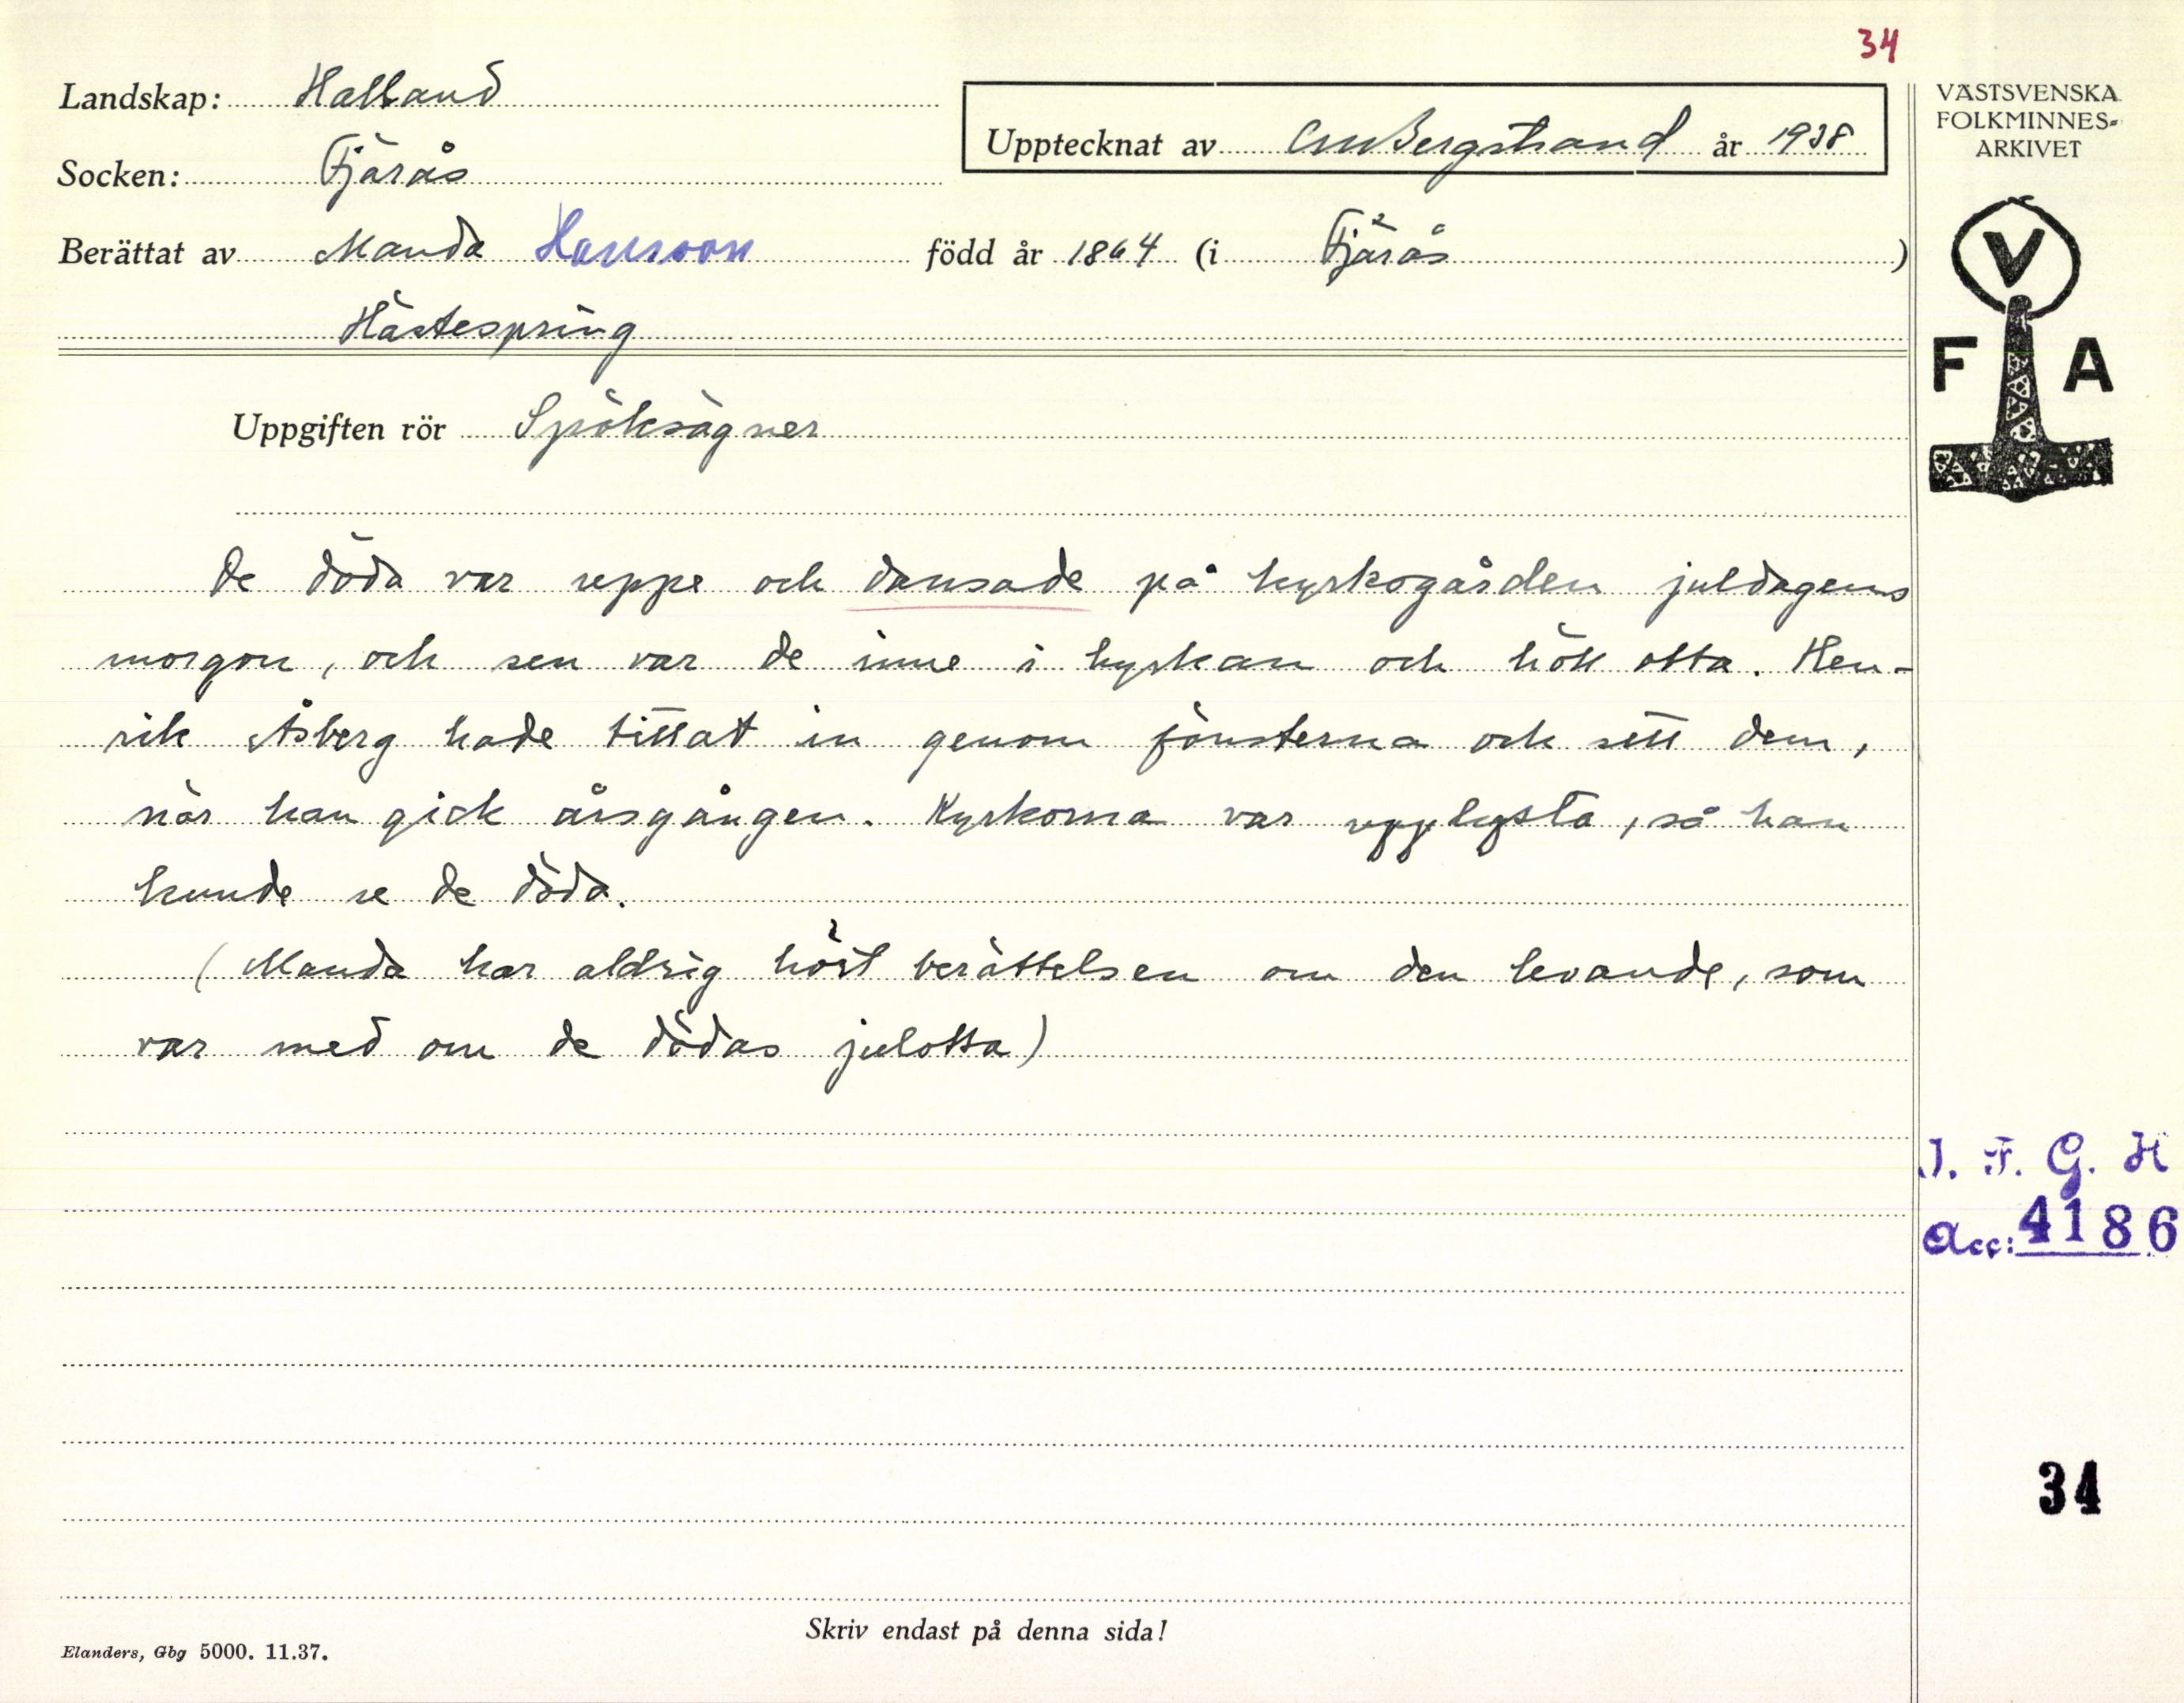 34
Landskap: Halland
Upptecknat av CMBergstrand år 1938
Socken: Fjärås
Berättat av Manda Hansson född år 1864 (i Fjärås)
Hästespring
VÄSTSVENSKA
FOLKMINNES-
ARKIVET
V
F A
Uppgiften rör Spöksägner
De döda var uppe och dansade på kyrkogården juldagens
morgon, och sen var de inne i kyrkan och höll otta. Hen-
rik Åsberg hade tittat in genom fönsterna och sett dem,
när han gick årsgången. Kyrkorna var upplysta, så han
kunde se de döda.
(Manda har aldrig hört berättelsen om den levande, som
var med om de dödas julotta)
I. F. G. H
Acc: 4186
34
Skriv endast på denna sida!
Elanders, Gbg 5000. 11.37.